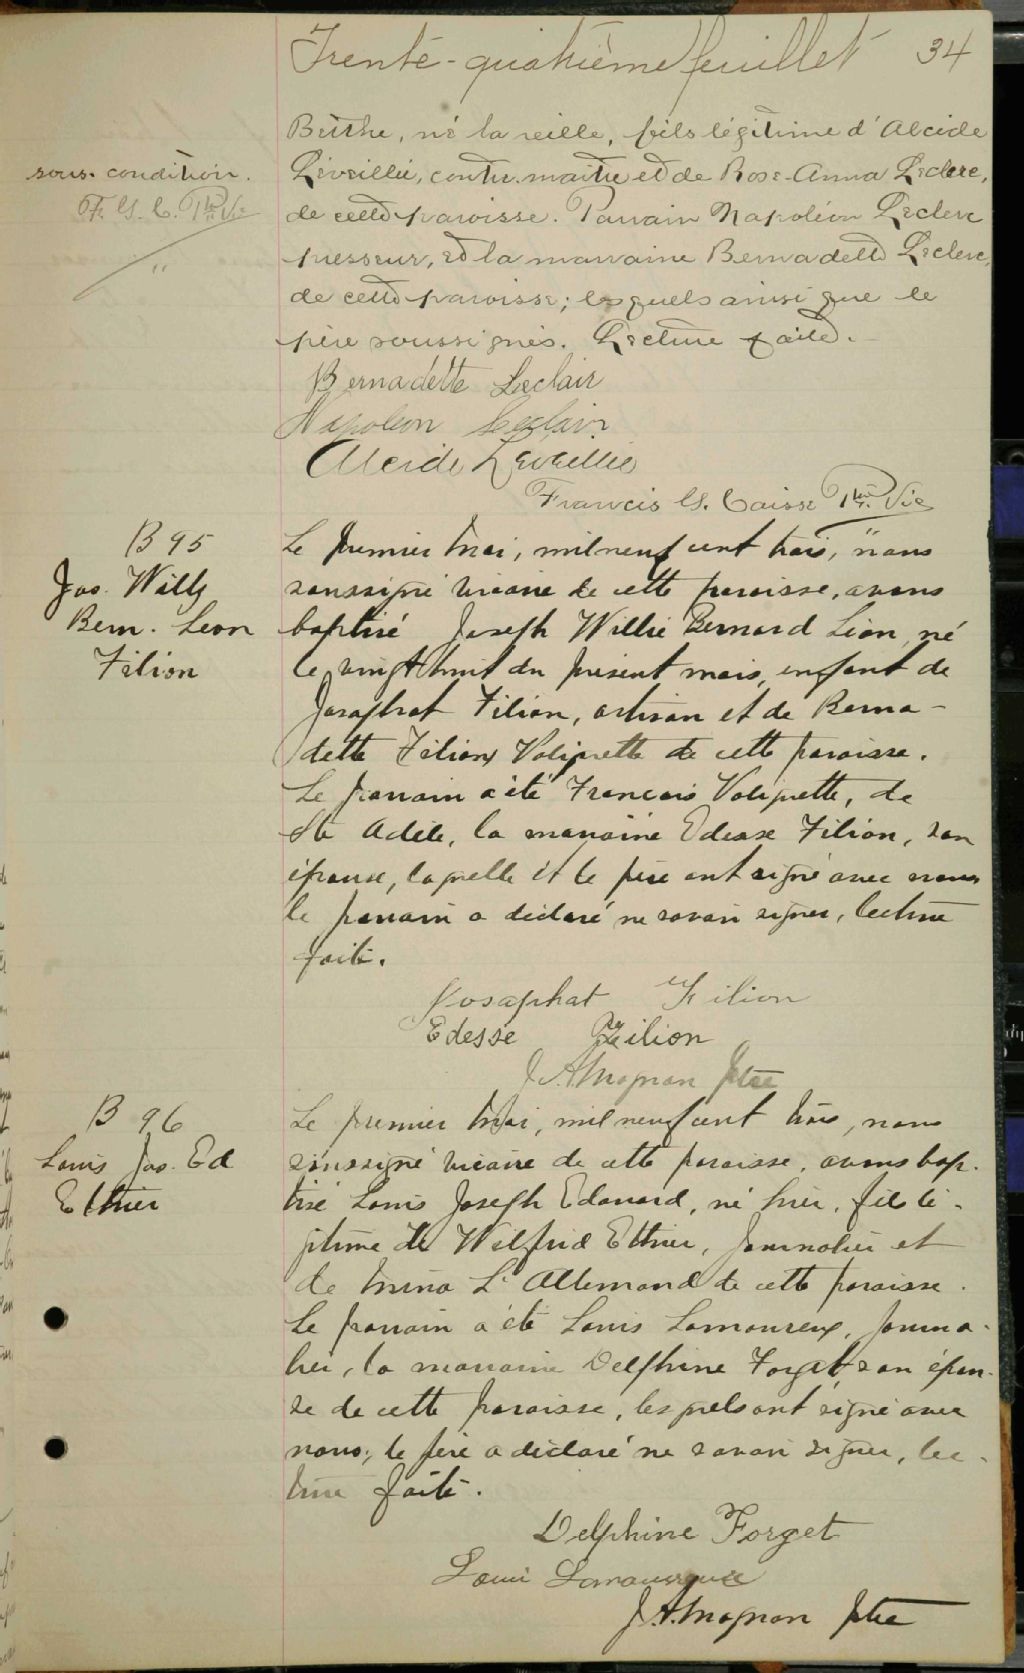 Trente-quatrième feuillet 34
Berthe, né la veille, fils légitime d'Alcide
sous-condition.
Léveillée, contre-maître et de Rose-Anna Leclerc,
F. G. C. Ptre Vic
de cette paroisse. Parrain Napoléon Leclerc
presseur, et la marraine Bernadette Leclerc,
de cette paroisse; lesquels ainsi que le
père soussignés. Lecture faite.
Bernadette Leclair
Napoleon Leclair
Alcide Leveillee
Francis G. Caisse Ptre. Vic
B 95
Jos. Willy
Bern. Leon
Filion
Le premier mai, mil neuf cent trois, nous
soussigné vicaire de cette paroisse, avons
baptisé Joseph Willie Bernard Léon né
le vingt huit du présent mois, enfant de
Josaphat Filion, artisan et de Berna-
dette Filion Valiquette de cette paroisse.
Le parrain a été Francois Valiquette, de
Ste Adèle, la marraine Edesse Filion, son
épouse, laquelle et le père ont signé avec nous
le parrain a déclaré ne savoir signer, lecture
faite.
Josaphat Filion
Edesse Filion
J. A. Magnan ptre
B 96
Louis Jos. Ed
Ethier
Le premier mai, mil neuf cent trois, nous
soussigné vicaire de cette paroisse, avons bap-
tisé Louis Joseph Edouard, né hier, fils lé-
gitime de Wilfrid Ethier, journalier et
de Mina L'Allemand de cette paroisse.
Le parrain a été Louis Lamoureux, journa-
lier, la marraine Delphine Forget, son épou-
se de cette paroisse, lesquels ont signé avec
nous, le père a déclaré ne savoir signer, lec-
ture faite.
Delphine Forget
Loui Lamoureux
J. A. Magnan ptre